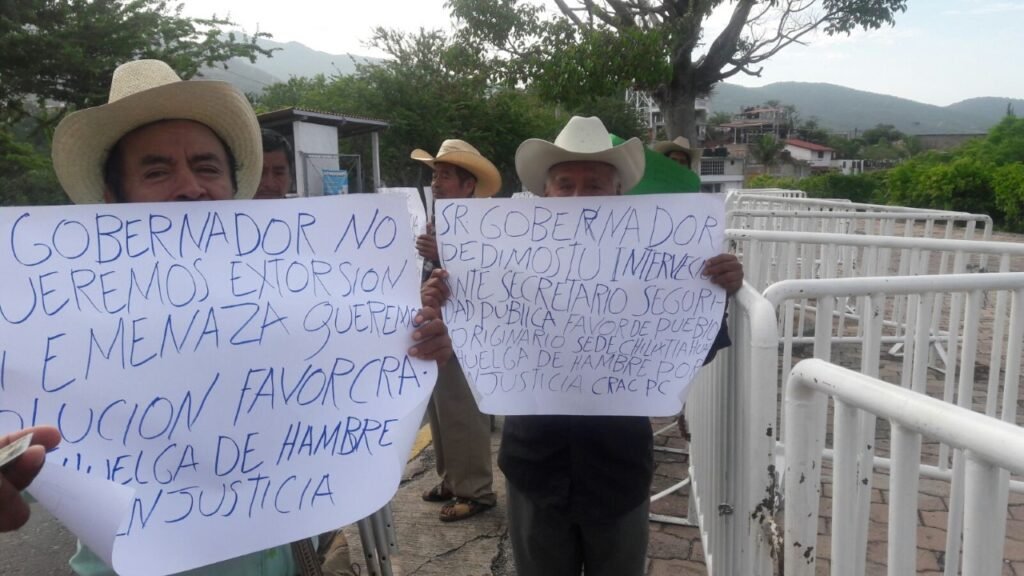 GOBERNADOR NO
UEREMOS EXTORSION
E MENAZA QUEREM
OLUCION FAVOR CRA
HUELGA DE HAMBRE
NJUSTICIA
SR GOBERNADOR
PEDIMOS TU INTERVECI
NTE SECRETARIO SEGURI
DAD PUBLICA FAVOR DE PUEBLO
ORIGINARIO SEDE
HUELGA DE HAMBRE POR
NJUSTICIA CRAC PC